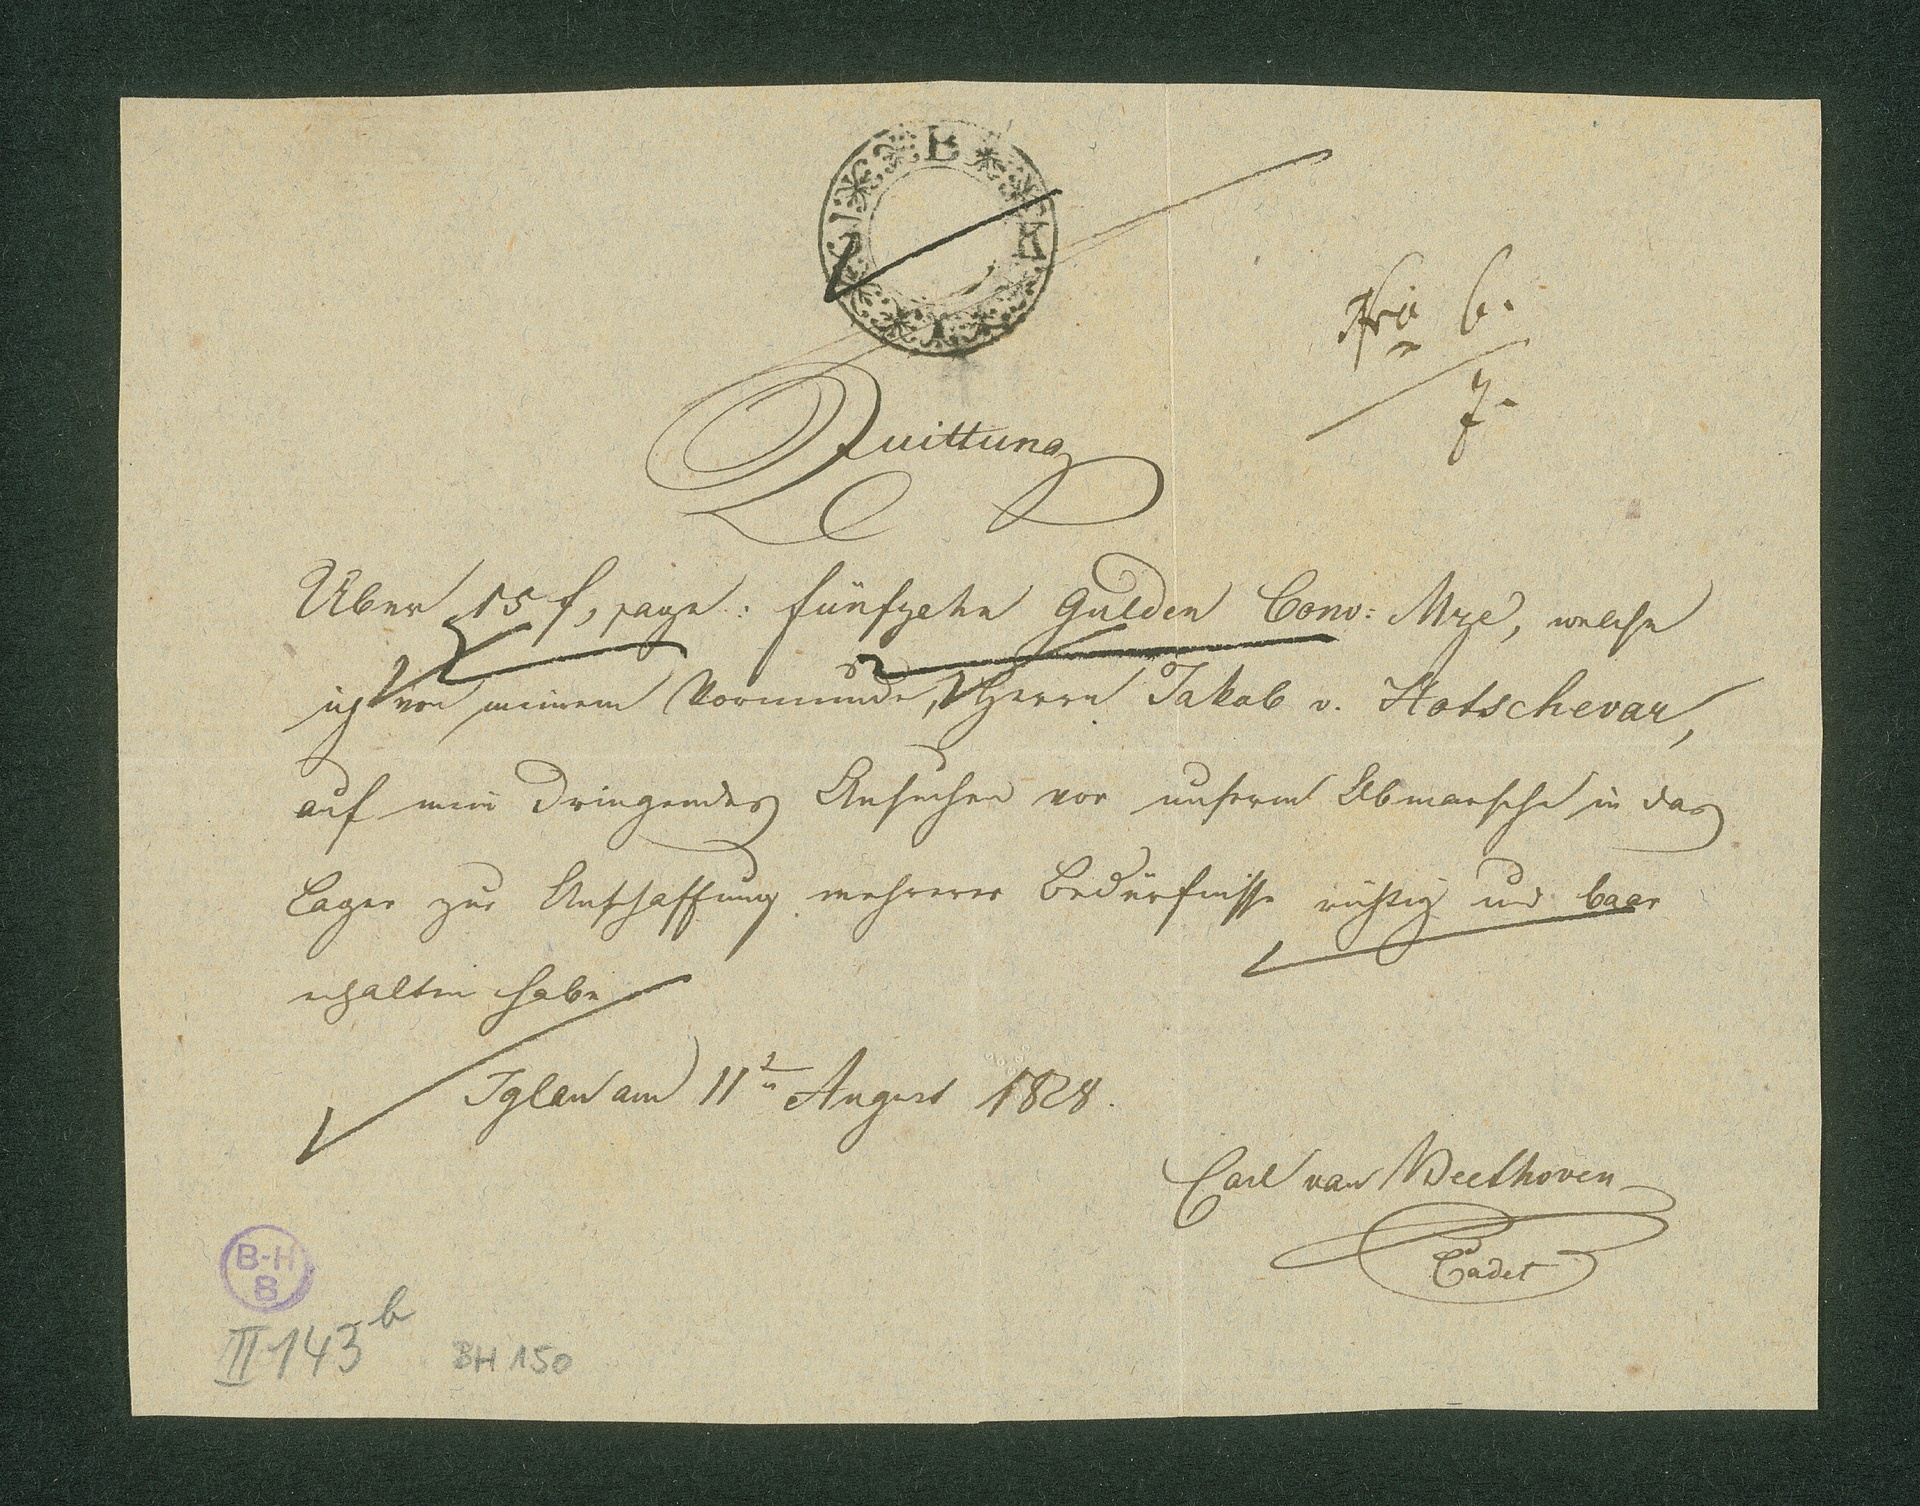 B
K
Nro 6.
7.
Quittung
Über 15 f, sage: fünfzehn Gulden Conv: Mze, welche
ich von meinem Vormunde, Herrn Jakob v. Hotschevar,
auf mein dringendes Ansuchen vor unserm Abmarsche in das
Lager zur Anschaffung mehrerer Bedürfnisse richtig und baar
erhalten habe
Iglau am 11t August 1828.
Carl van Beethoven
Cadet
B-H
B
II 143 b
BH 150